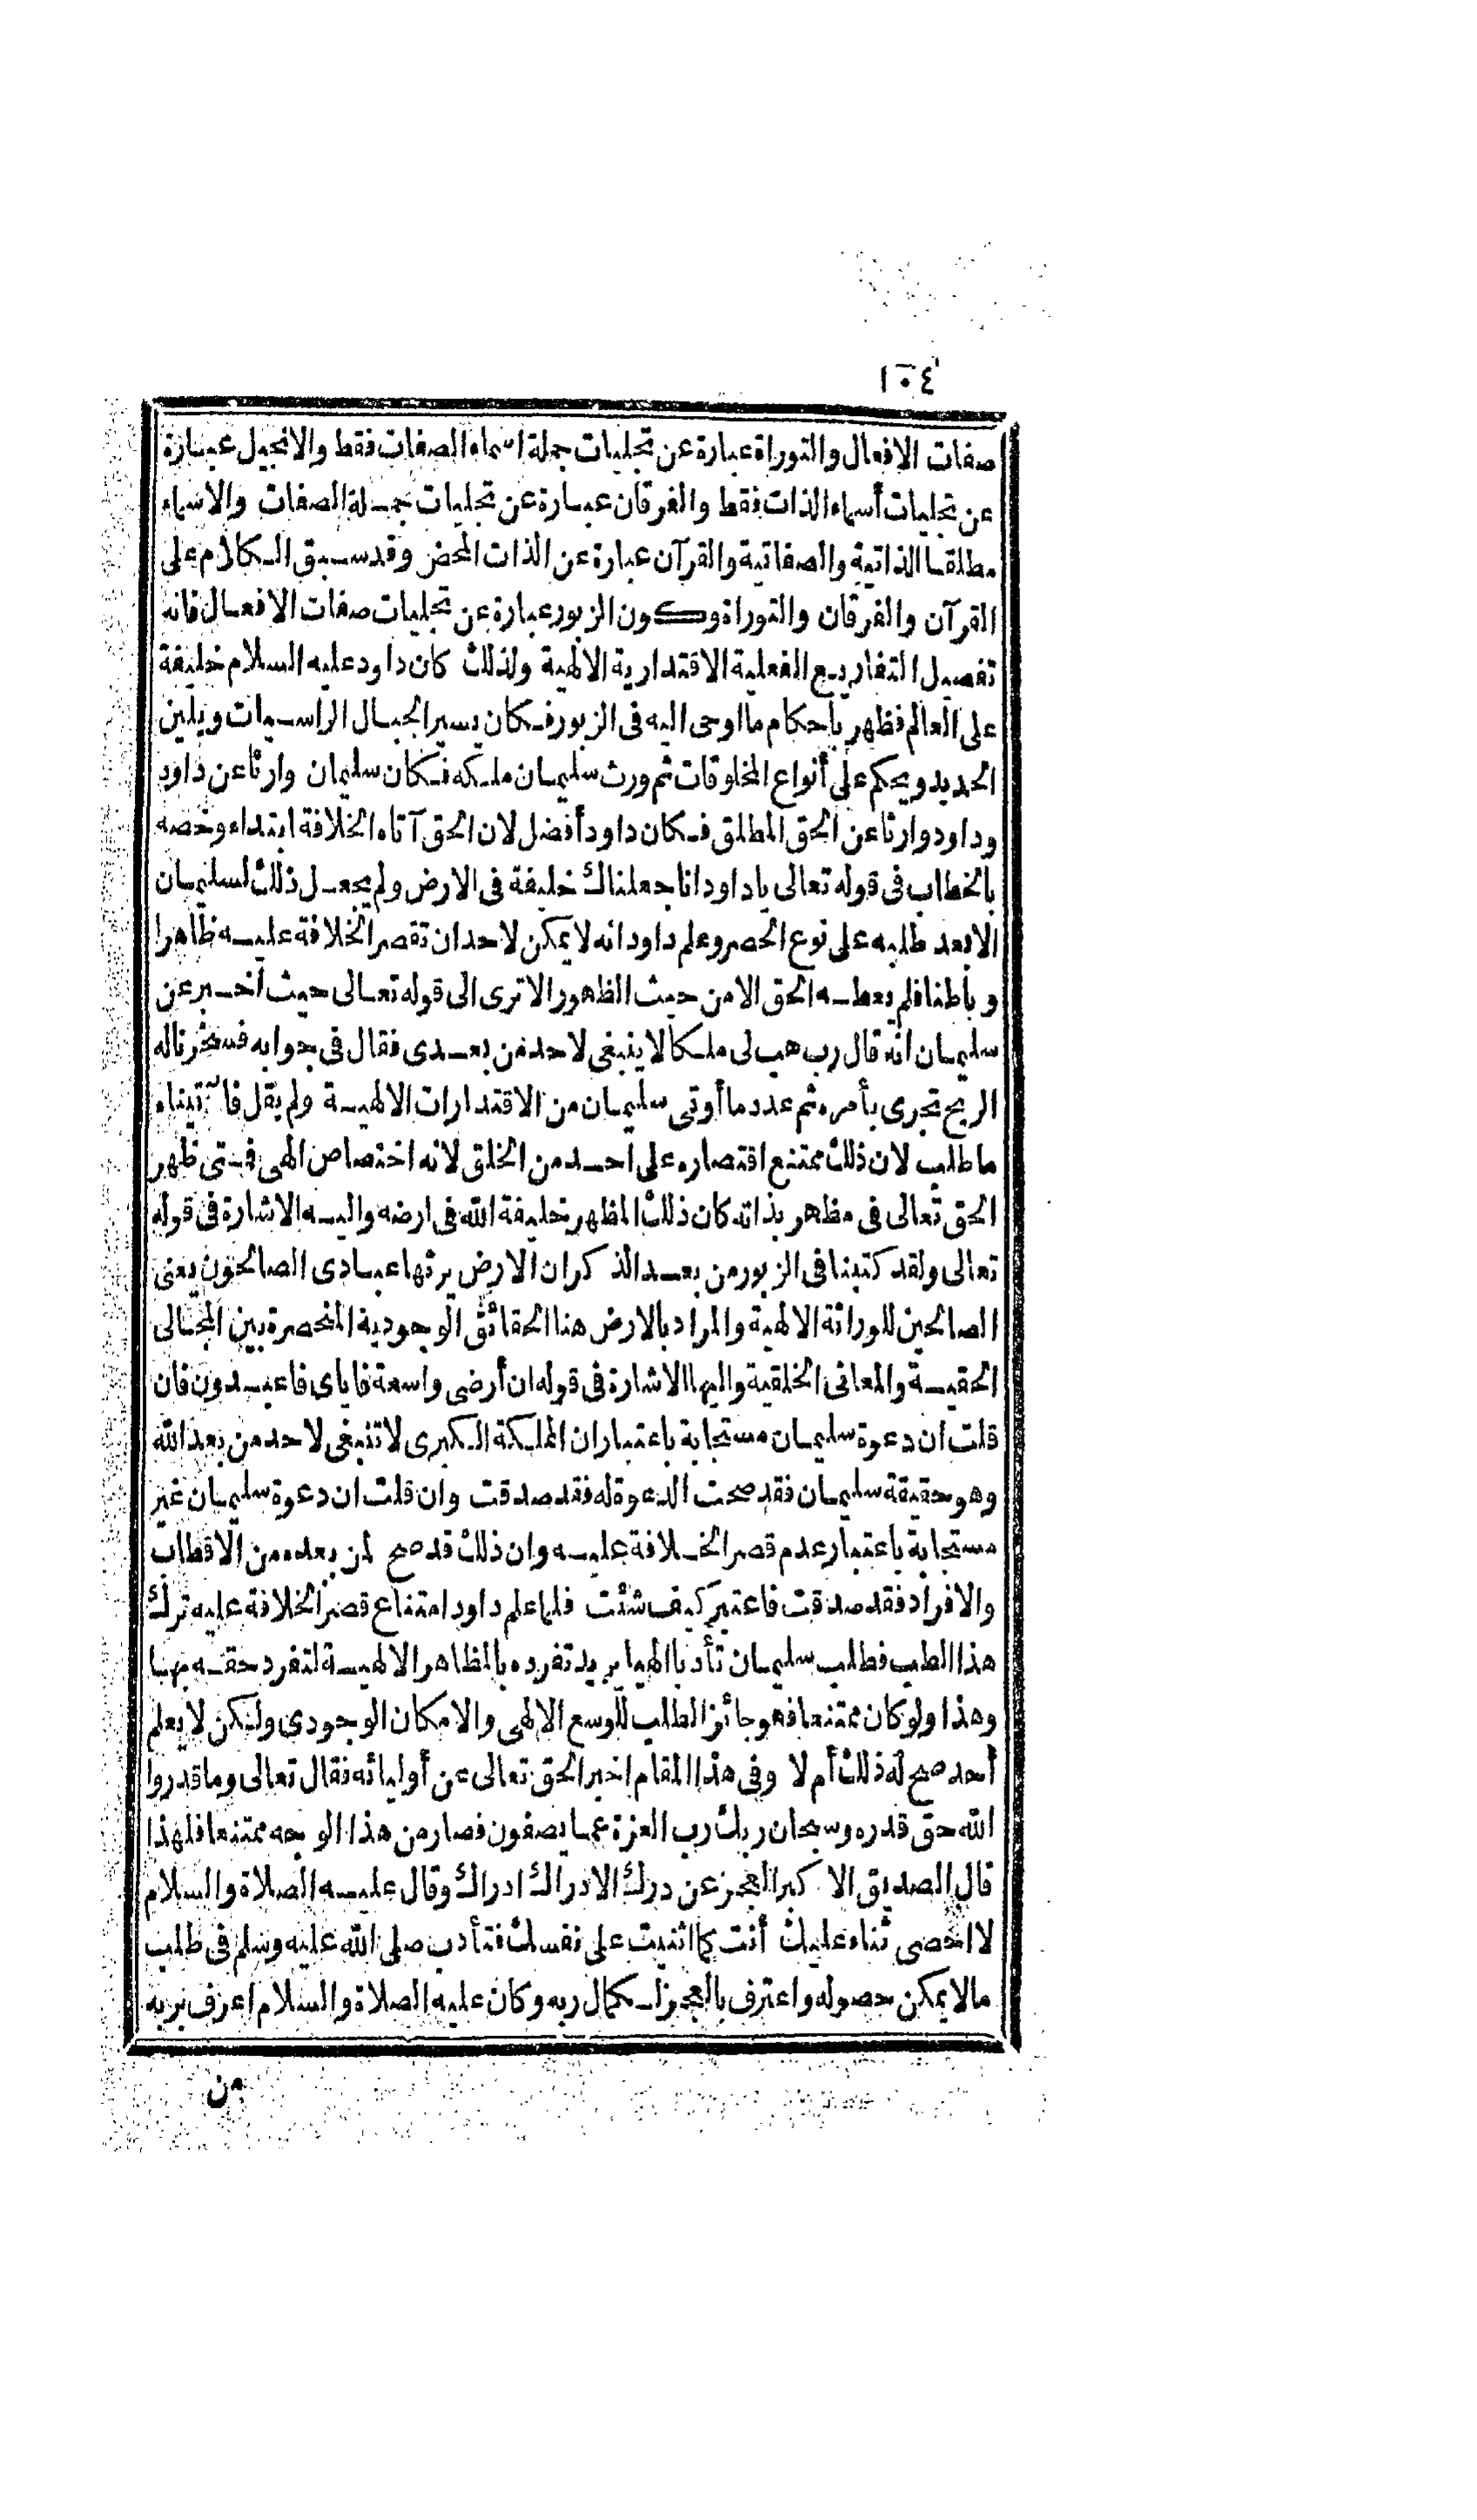 ١٠٤
صفات الافعال والتوراة عبارة عن تجليات جملة اسماء الصفات فقط والانجيل عبارة
عن تجليات أسماء الذات فقط والفرقان عبارة عن تجليات جملة الصفات والاسماء
مطلقا الذاتية والصفاتية والقرآن عبارة عن الذات المحض وقد سبق الكلام على
القرآن والفرقان والتوراة وكون الزبور عبارة عن تجليات صفات الافعال فانه
تفصيل التفاريع الفعلية الاقتدارية الالهية ولذلك كان داود عليه السلام خليفة
على العالم فظهر بأحكام ما اوحى اليه فى الزبور فكان يسير الجبال الراسيات ويلين
الحديد ويحكم على أنواع المخلوقات ثم ورث سليمان ملكه فكان سليمان وارثا عن داود
وداود وارثا عن الحق المطلق فكان داود أفضل لان الحق آتاه الخلافة ابتداء وخصه
بالخطاب فى قوله تعالى ياداود انا جعلناك خليفة فى الارض ولم يجعل ذلك لسليمان
الا بعد طلبه على نوع الحصر وعلم داود انه لا يمكن لاحد ان تقصر الخلافة عليه ظاهرا
وباطنا فلم يعطه الحق الا من حيث الظهور الا ترى الى قوله تعالى حيث أخبر عن
سليمان انه قال رب هب لى ملكا لا ينبغى لاحد من بعدى فقال فى جوابه فسخرنا له
الريح تجرى بأمره ثم عدد ما أوتى سليمان من الاقتدارات الالهية ولم يقل فا ٓتيناه
ما طلب لان ذلك ممتنع اقتصاره على احد من الخلق لانه اختصاص الهى فمتى ظهر
الحق تعالى فى مظهر بذاته كان ذلك المظهر خليفة الله فى ارضه واليه الاشارة فى قوله
تعالى ولقد كتبنا فى الزبور من بعد الذكر ان الارض يرثها عبادى الصالحون يعنى
الصالحين للوراثة الالهية والمراد بالارض هنا الحقائق الوجودية المنحصرة بين المجالى
الحقية والمعانى الخلقية واليها الاشارة فى قوله ان أرضى واسعة فاياى فاعبدون فان
قلت ان دعوة سليمان مستجابة باعتبار ان المملكة الكبرى لا تنبغى لاحد من بعد الله
وهو حقيقة سليمان فقد صحت الدعوة له فقد صدقت وان قلت ان دعوة سليمان غير
مستجابة باعتبار عدم قصر الخلافة عليه وان ذلك قد صح لمن بعده من الاقطاب
والافراد فقد صدقت فاعتبر كيف شئت فلما علم داود امتناع قصر الخلافة عليه ترك
هذا الطلب فطلب سليمان تأدبا الهيا يريد تفرده بالمظاهر الالهية لتفرد حقه بها
وهذا ولو كان ممتنعا فهو جائز الطلب للوسع الالهى والامكان الوجودى ولكن لا يعلم
أحد صح له ذلك أم لا وفى هذا المقام اخبر الحق تعالى عن أوليائه فقال تعالى وما قدروا
الله حق قدره وسبحان ربك رب العزة عما يصفون فصار من هذا الوجه ممتنعا فلهذا
قال الصديق الاكبر العجز عن درك الادراك ادراك وقال عليه الصلاة والسلام
لا احصى ثناء عليك أنت كما اثنيت على نفسك فتأدب صلى الله عليه وسلم فى طلب
ما لا يمكن حصوله واعترف بالعجز لكمال ربه وكان عليه الصلاة والسلام اعرف بربه
من